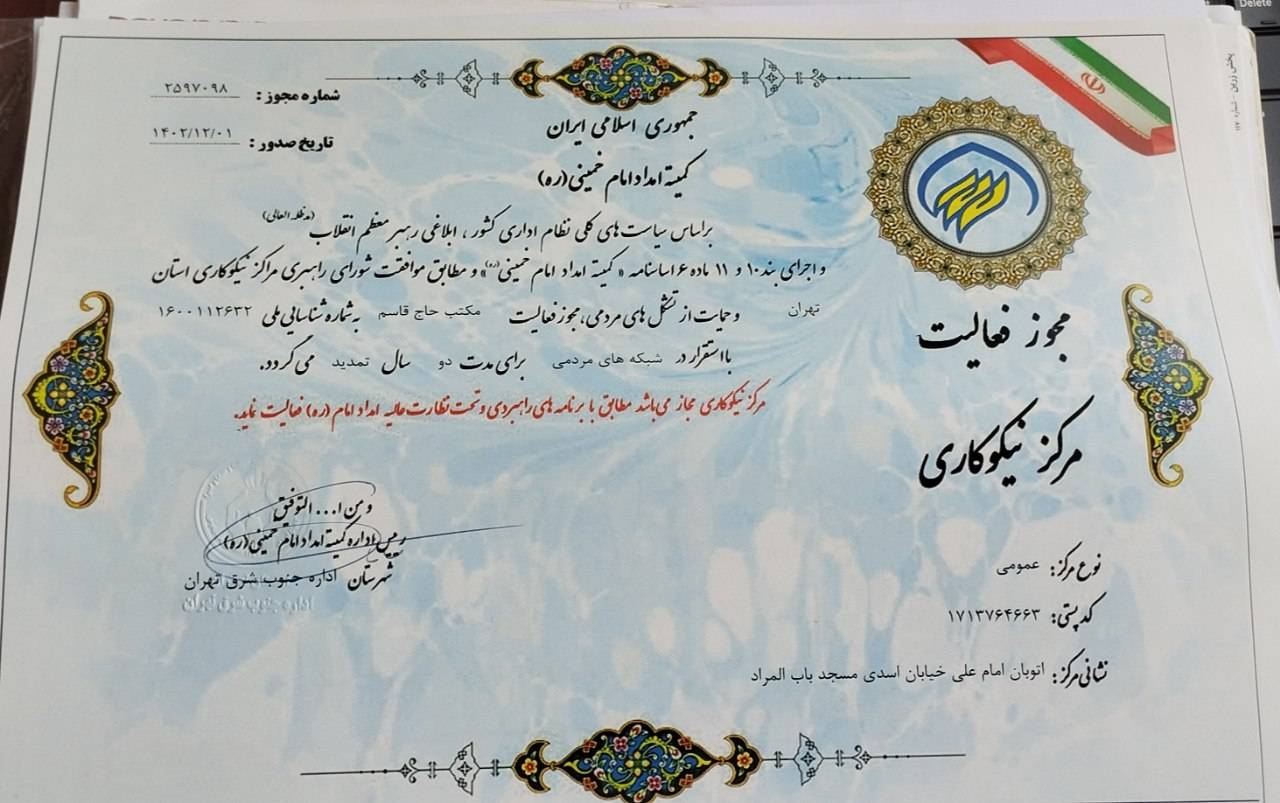 شماره مجوز : ۲۵۹۷۰۹۸
تاریخ صدور : ۱۴۰۲/۱۲/۰۱
جمهوری اسلامی ایران
کمیته امداد امام خمینی (ره)
براساس سیاست های کلی نظام اداری کشور ، ابلاغی رهبر معظم انقلاب (مدظله العالی)
و اجرای بند ۱۰ و ۱۱ ماده ۶ اساسنامه « کمیته امداد امام خمینی (ره)» و مطابق موافقت شورای راهبری مراکز نیکوکاری استان
تهران و حمایت از تشکل های مردمی، مجوز فعالیت مکتب حاج قاسم به شماره شناسایی ملی ۱۶۰۰۱۱۲۶۳۲
با استقرار در شبکه های مردمی برای مدت دو سال تمدید می گردد.
مرکز نیکوکاری مجاز می باشد مطابق با برنامه های راهبردی و تحت نظارت عالیه امداد امام (ره) فعالیت نماید.
مجوز فعالیت
مرکز نیکوکاری
و من ا... التوفیق
رییس اداره کمیته امداد امام خمینی (ره)
شهرستان اداره جنوب شرق تهران
اداره جنوب شرق تهران
نوع مرکز : عمومی
کد پستی : ۱۷۱۳۷۶۴۶۶۳
نشانی مرکز : اتوبان امام علی خیابان اسدی مسجد باب المراد
Delete